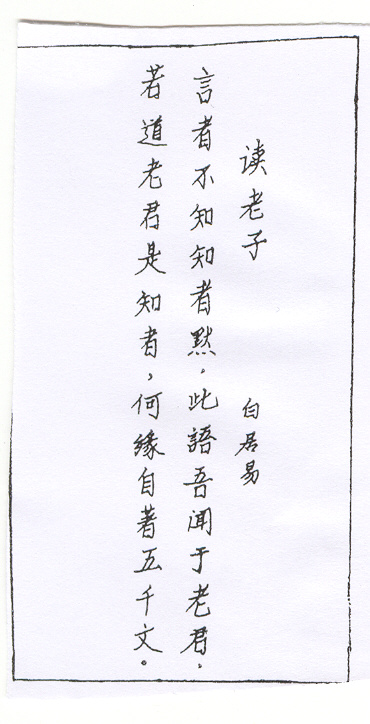 读老子
白居易
言者不知知者默，此語吾闻于老君，
若道老君是知者，何緣自著五千文。